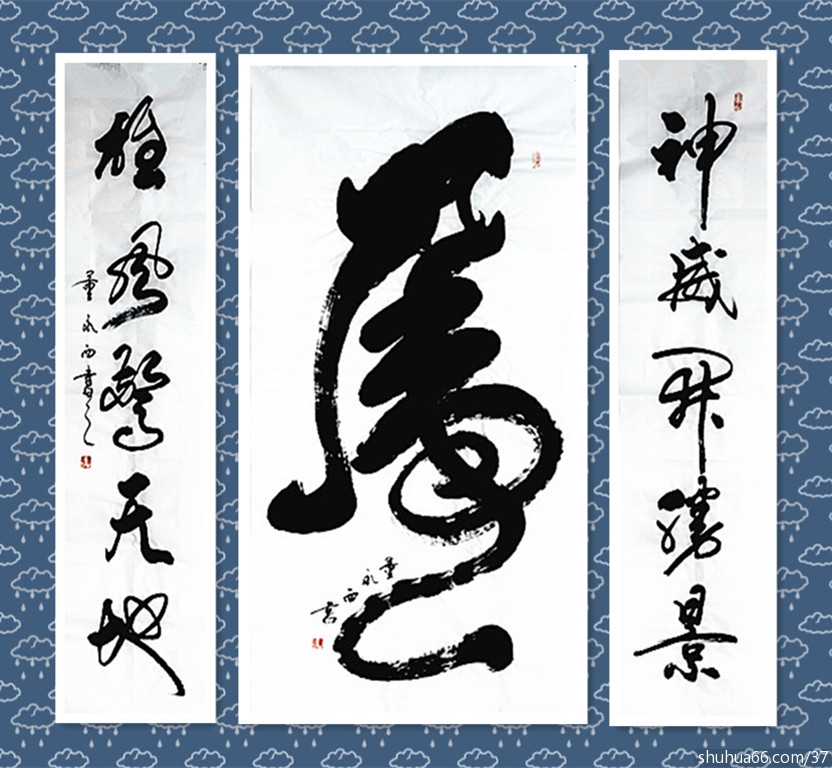 神威開勝景
虎
董永西書
雄風驚天地
董永西書之
shuhua66.com/37